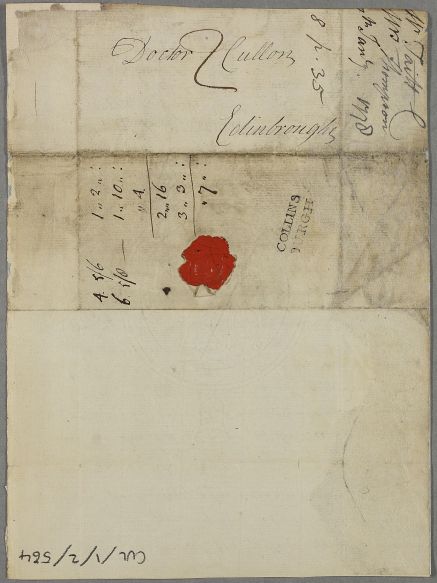 Doctor Cullon
2
Edinbrough
8 h. 35
Mr Tait &
Mr Thomson
Janry. 1778
4 5/6 1 " 2 " :
6 5/8 — 1 " 10 " :
" 4
2 " 16
3 " 3 " :
" 7 " :
COLLINS
BURGH
CUL/1/2/584